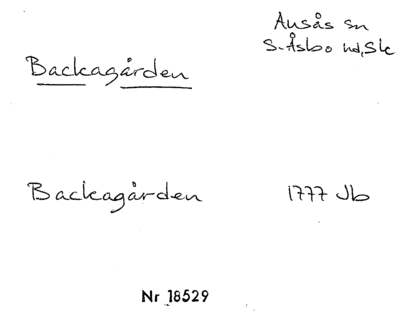 Ausås sn
S. Åsbo hd, Sk
Backagården
Backagården 1777 Jb
Nr 18529